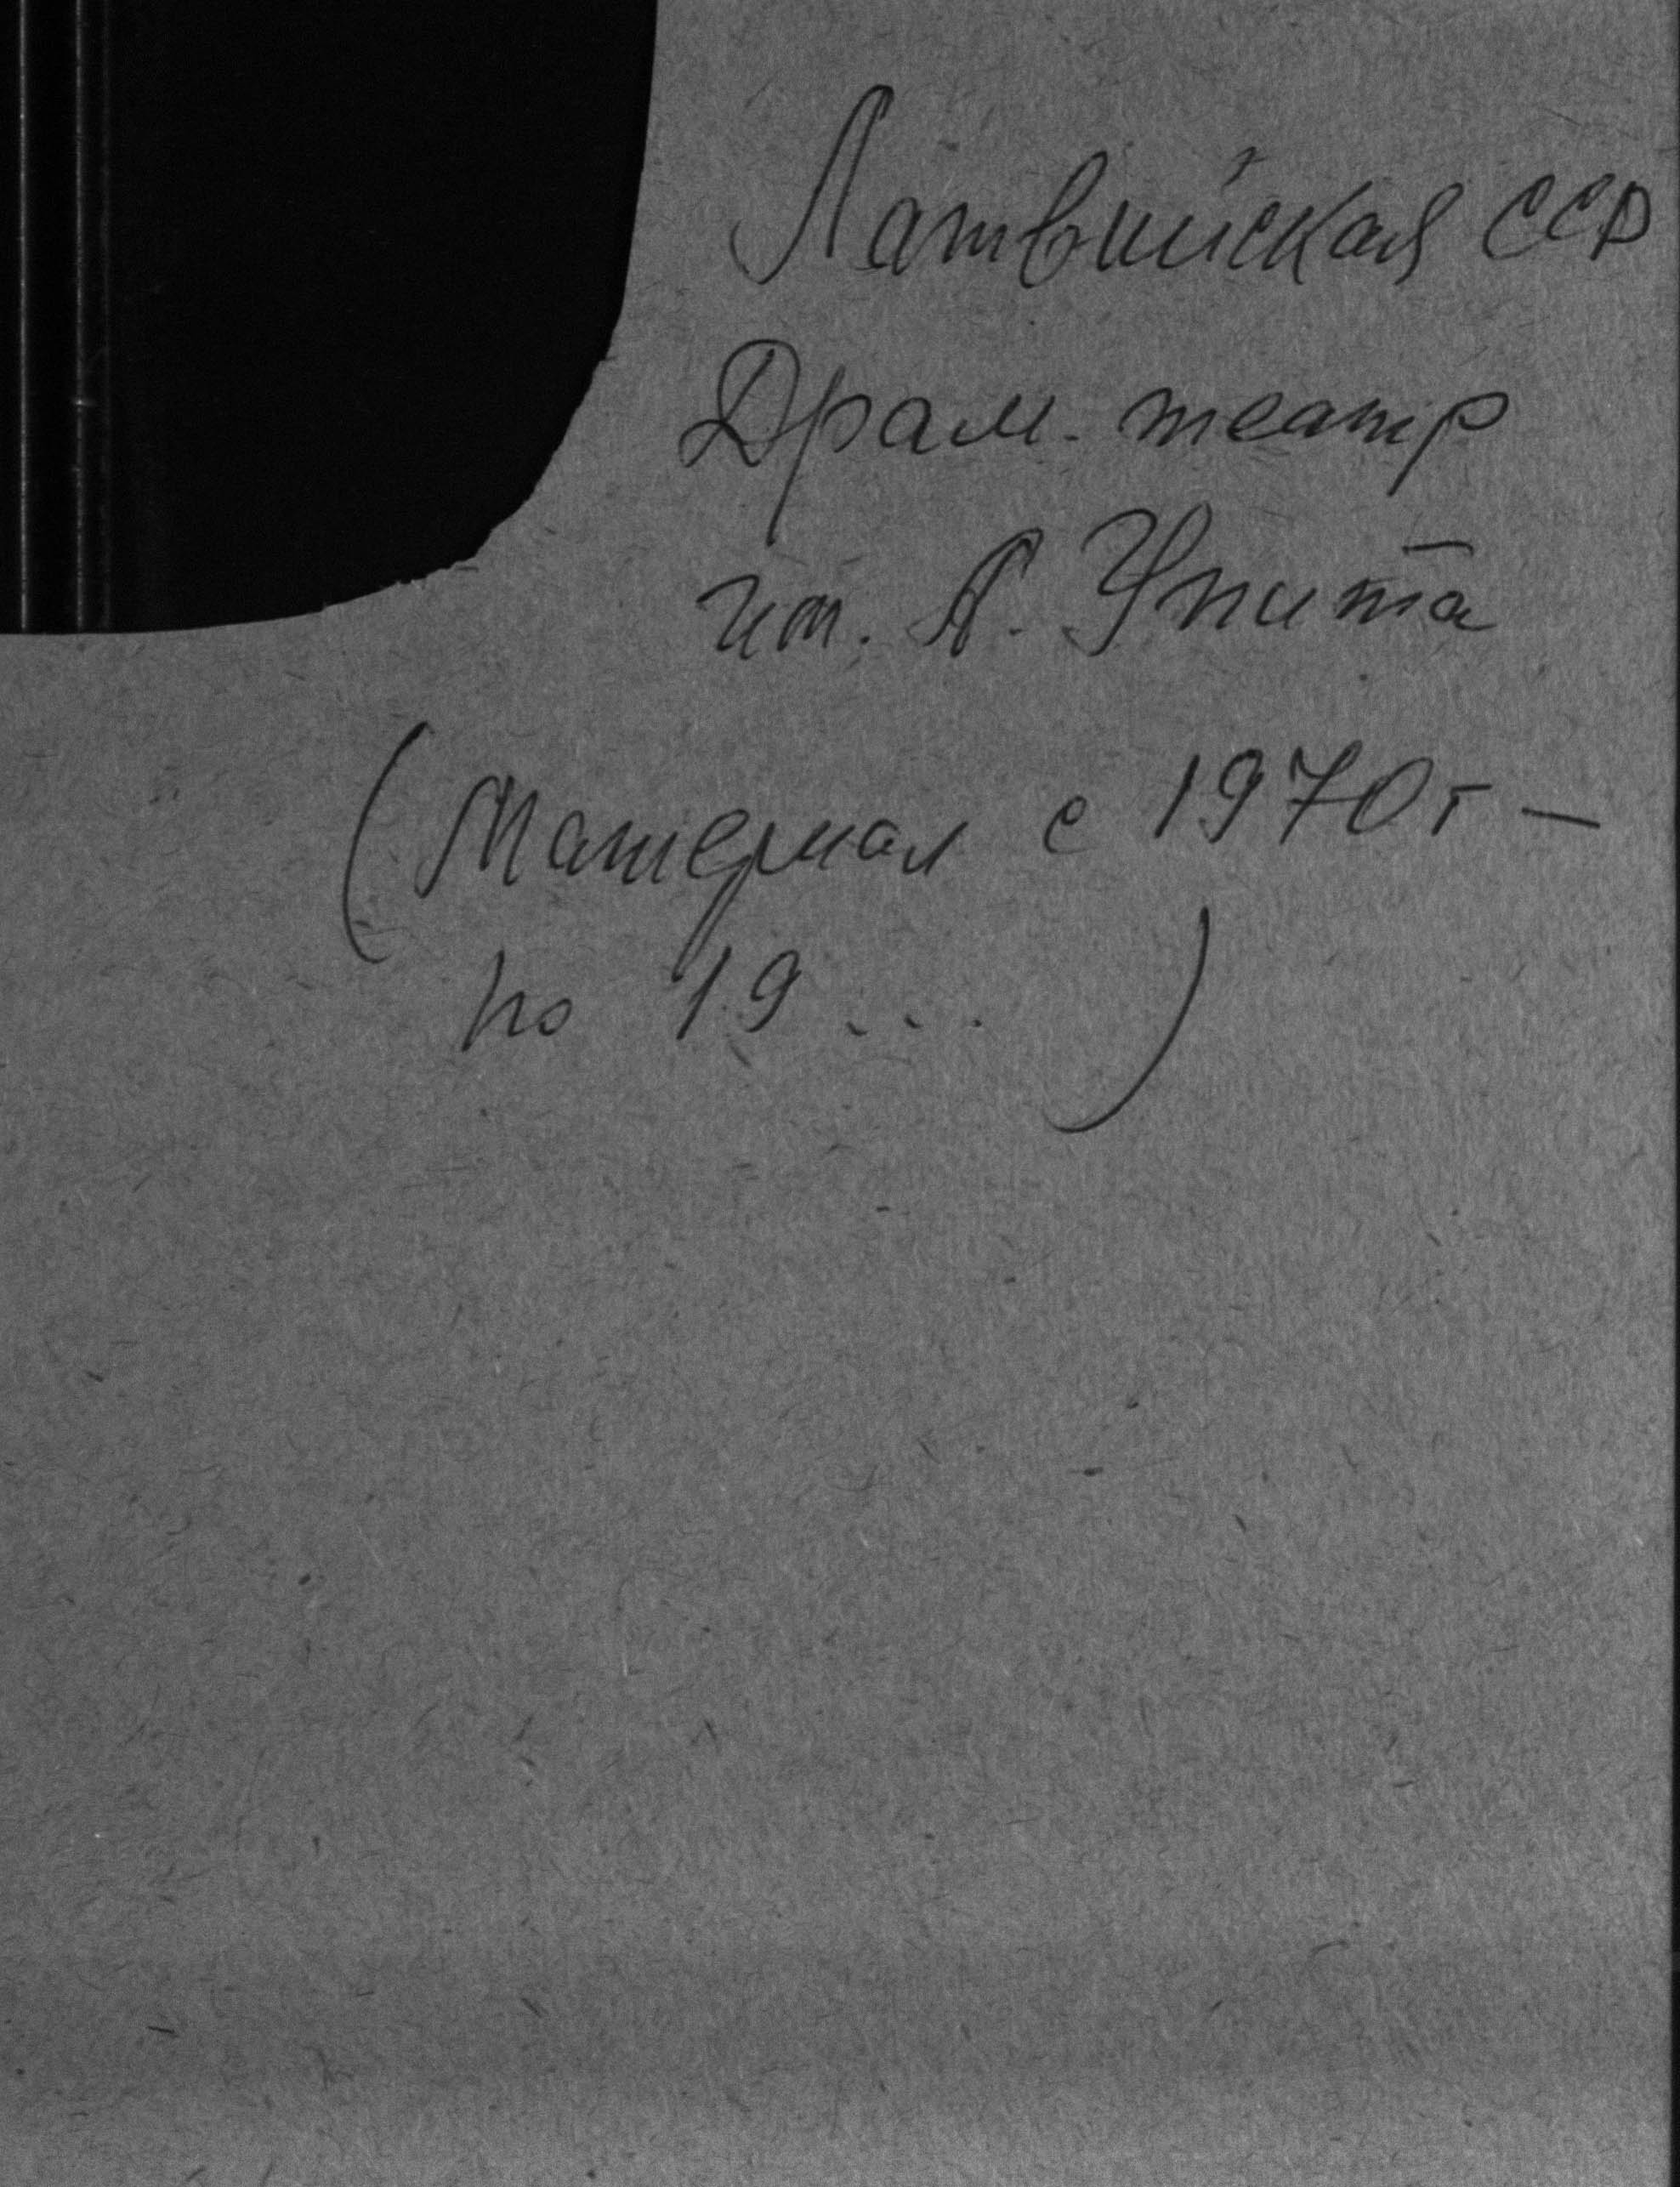 Латвийская ССР
Драм. театр
им. А. Упита
(Материал с 1970г —
по 19 ... )